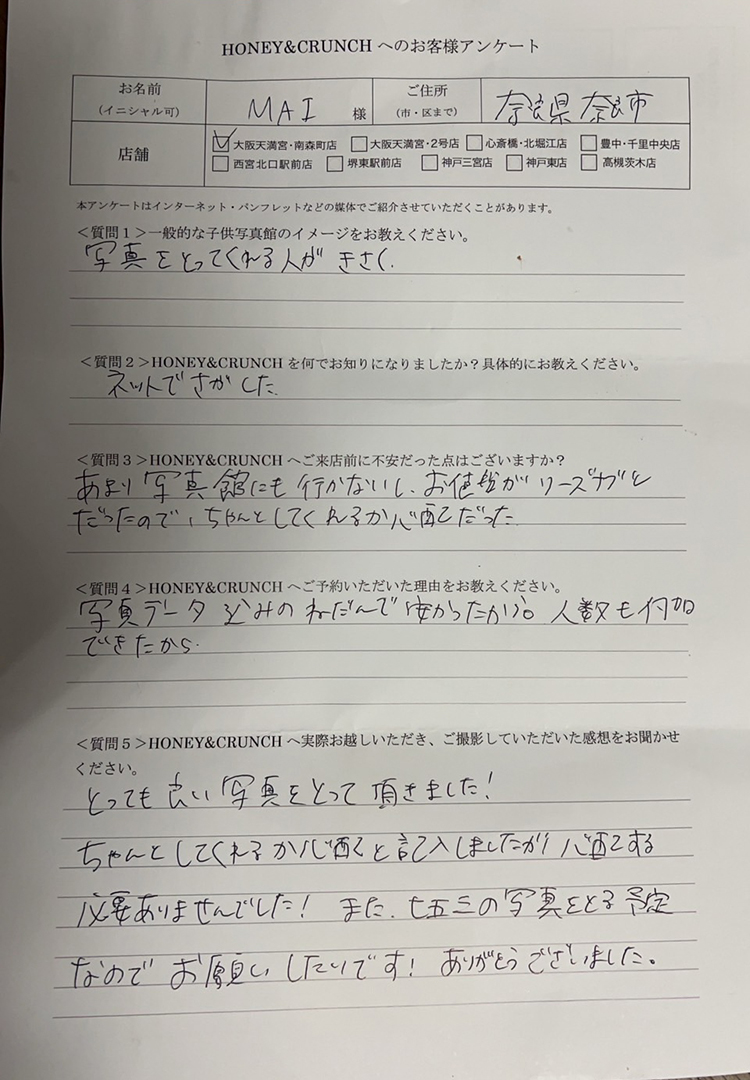 HONEY&CRUNCH へのお客様アンケート
お名前
(イニシャル可)
MAI 様
ご住所
(市・区まで)
奈良県 奈良市
店舗
大阪天満宮・南森町店 大阪天満宮・2号店 心斎橋・北堀江店 豊中・千里中央店
西宮北口駅前店 堺東駅前店 神戸三宮店 神戸東店 高槻茨木店
本アンケートはインターネット・パンフレットなどの媒体でご紹介させていただくことがあります。
<質問1>一般的な子供写真館のイメージをお教えください。
写真をとってくれる人が きさく.
<質問2>HONEY&CRUNCH を何でお知りになりましたか?具体的にお教えください。
ネットでさがした.
<質問3>HONEY&CRUNCH へご来店前に不安だった点はございますか?
あまり写真館にも行かないし、お値段がリーズナブル
だったので、ちゃんとしてくれるか心配だった.
<質問4>HONEY&CRUNCH へご予約いただいた理由をお教えください。
写真データ込みのねだんで安かったから。人数も付加
できたから.
<質問5>HONEY&CRUNCH へ実際お越しいただき、ご撮影していただいた感想をお聞かせ
ください。
とっても良い写真をとって頂きました!
ちゃんとしてくれるか心配と記入しましたが心配する
必要ありませんでした! また、七五三の写真をとる予定
なのでお願いしたいです! ありがとうございました。